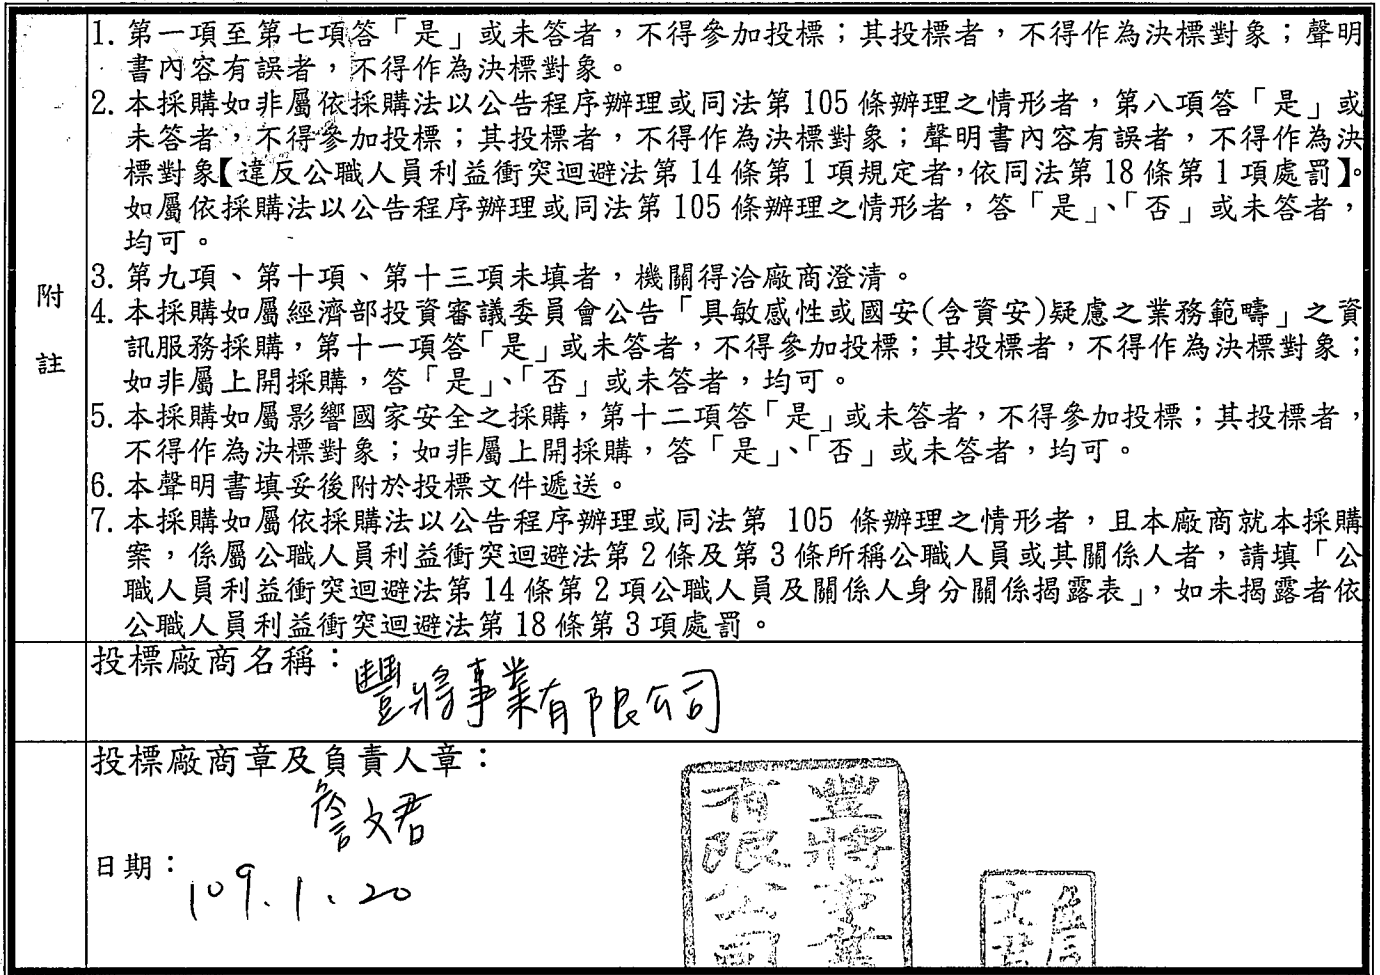 1. 第一項至第七項答「是」或未答者，不得參加投標；其投標者，不得作為決標對象；聲明
書內容有誤者，不得作為決標對象。
2. 本採購如非屬依採購法以公告程序辦理或同法第 105 條辦理之情形者，第八項答「是」或
未答者，不得參加投標；其投標者，不得作為決標對象；聲明書內容有誤者，不得作為決
標對象【違反公職人員利益衝突迴避法第 14 條第 1 項規定者，依同法第 18 條第 1 項處罰】。
如屬依採購法以公告程序辦理或同法第 105 條辦理之情形者，答「是」、「否」或未答者，
均可。
3. 第九項、第十項、第十三項未填者，機關得洽廠商澄清。
附
4. 本採購如屬經濟部投資審議委員會公告「具敏感性或國安(含資安)疑慮之業務範疇」之資
訊服務採購，第十一項答「是」或未答者，不得參加投標；其投標者，不得作為決標對象；
註
如非屬上開採購，答「是」、「否」或未答者，均可。
5. 本採購如屬影響國家安全之採購，第十二項答「是」或未答者，不得參加投標；其投標者，
不得作為決標對象；如非屬上開採購，答「是」、「否」或未答者，均可。
6. 本聲明書填妥後附於投標文件遞送。
7. 本採購如屬依採購法以公告程序辦理或同法第 105 條辦理之情形者，且本廠商就本採購
案，係屬公職人員利益衝突迴避法第 2 條及第 3 條所稱公職人員或其關係人者，請填「公
職人員利益衝突迴避法第 14 條第 2 項公職人員及關係人身分關係揭露表」，如未揭露者依
公職人員利益衝突迴避法第 18 條第 3 項處罰。
投標廠商名稱：
豐將事業有限公司
投標廠商章及負責人章：
詹文君
日期：
109.1.20
豐將事業
有限公司
詹
文君